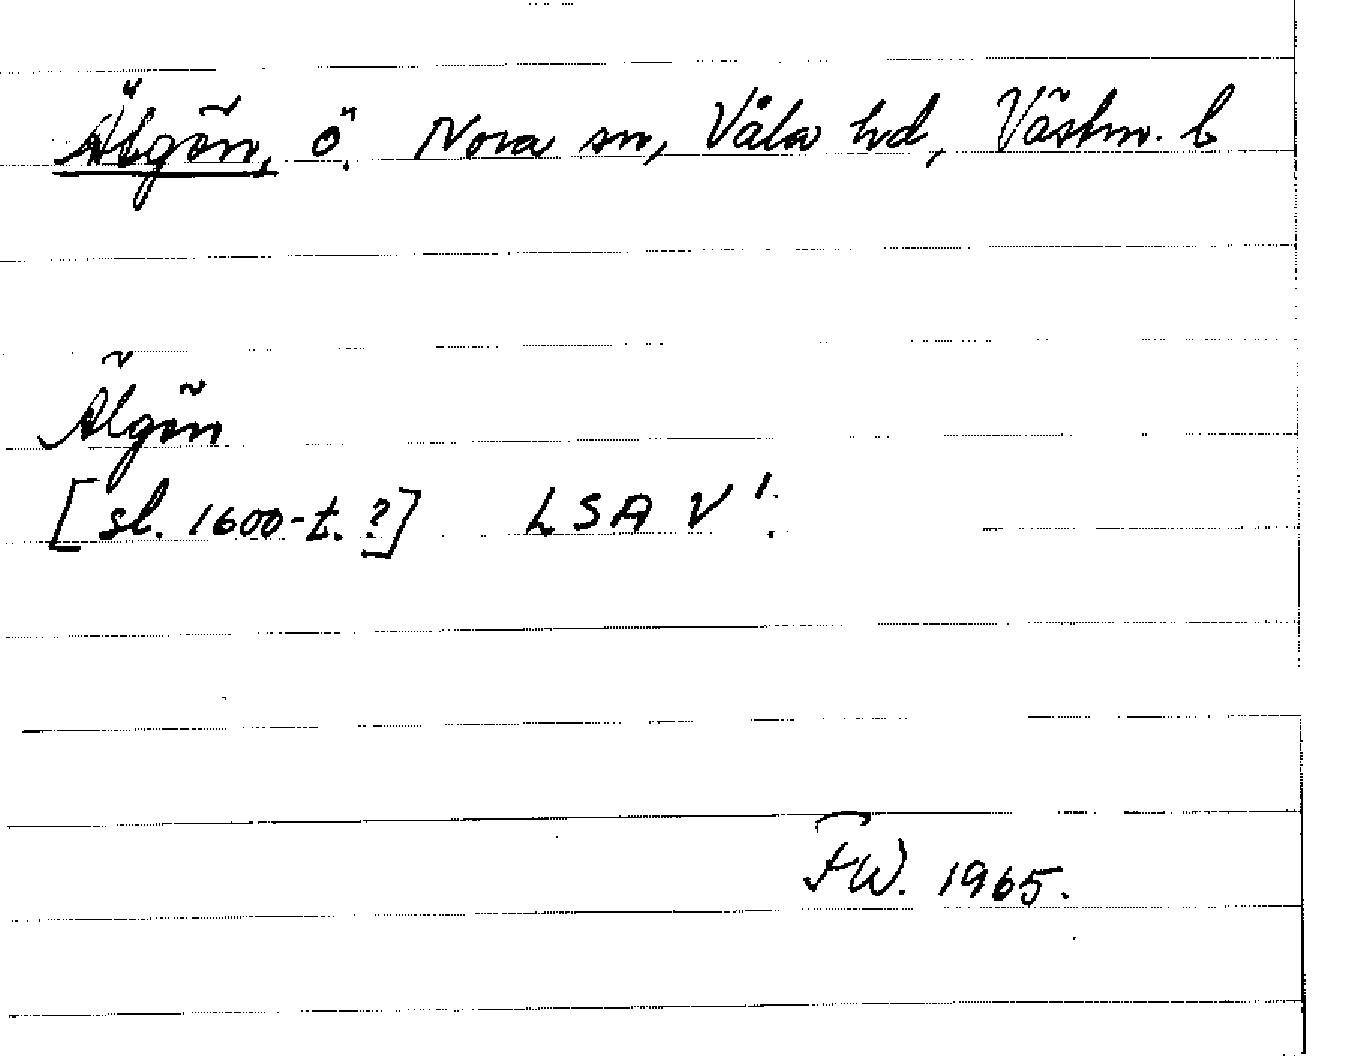 Älgön, ö. Nora sn, Våla hd, Västm. l
Älgön
[sl. 1600-t. ?] LSA V 1.
FW. 1965.